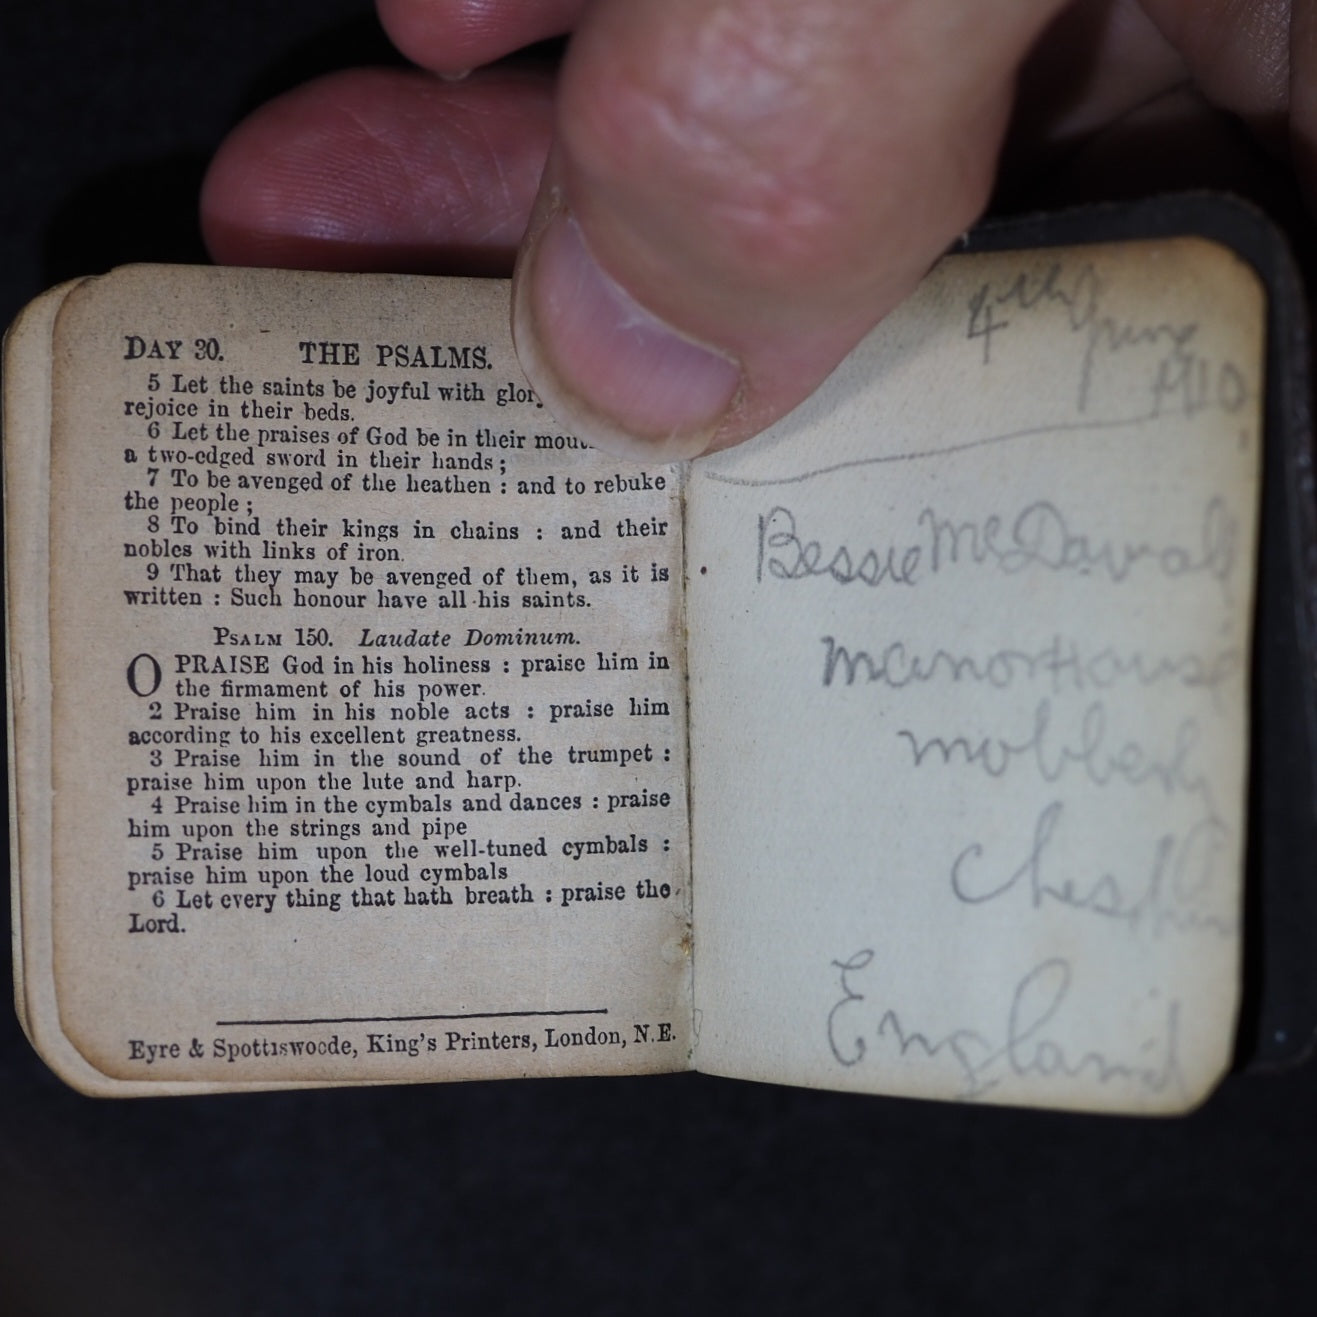 DAY 30. THE PSALMS.
5 Let the saints be joyful with
rejoice in their beds.
6 Let the praises of God be in their
a two-edged sword in their hands;
7 To be avenged of the heathen : and to rebuke
the people;
8 To bind their kings in chains : and their
nobles with links of iron.
9 That they may be avenged of them, as it is
written : Such honour have all his saints.
PSALM 150. Laudate Dominum.
O PRAISE God in his holiness : praise him in
the firmament of his power.
2 Praise him in his noble acts : praise him
according to his excellent greatness.
3 Praise him in the sound of the trumpet :
praise him upon the lute and harp.
4 Praise him in the cymbals and dances : praise
him upon the strings and pipe
5 Praise him upon the well-tuned cymbals :
praise him upon the loud cymbals
6 Let every thing that hath breath : praise the
Lord.
Eyre & Spottiswoode, King's Printers, London, N.E.
4th June
Bessie
Manor House
Mobberly
Cheshire
England